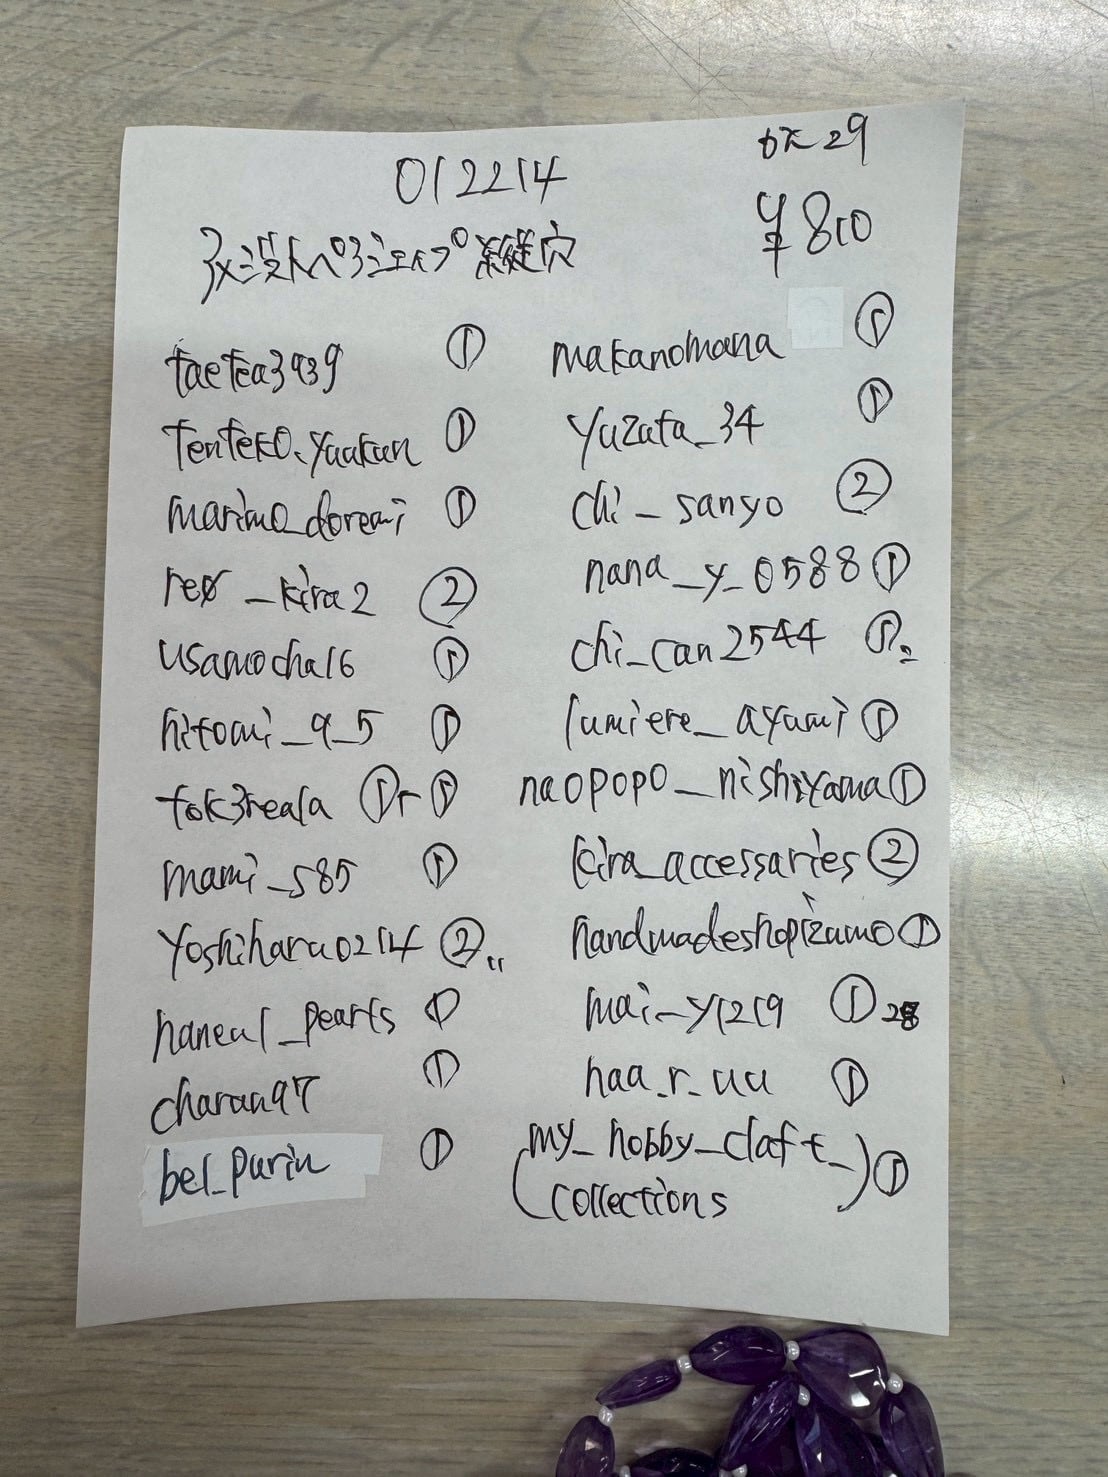 012214
オズ29
¥810
アメジストペアシェイプ縦穴
taetea3939 ①
tenteko.yuukun ①
marimo_doremi ①
reo_kira2 ②
usamocha16 ①
hitomi_9_5 ①
tok3reala ①+①
mami_s85 ①
yoshiharu0214 ②
haneul_pearls ①
charan97 ①
bel_purin ①
makanomana ①
yuzata_34 ①
chi_sanyo ②
nana_y_0588 ①
chi_can2544 ①
lumiere_ayumi ①
naopopo_nishiyama ①
kira_accessaries ②
handmadeshopizumo ①
mai_y1219 ①
haa_r_uu ①
(my_hobby_claft_
collections) ①